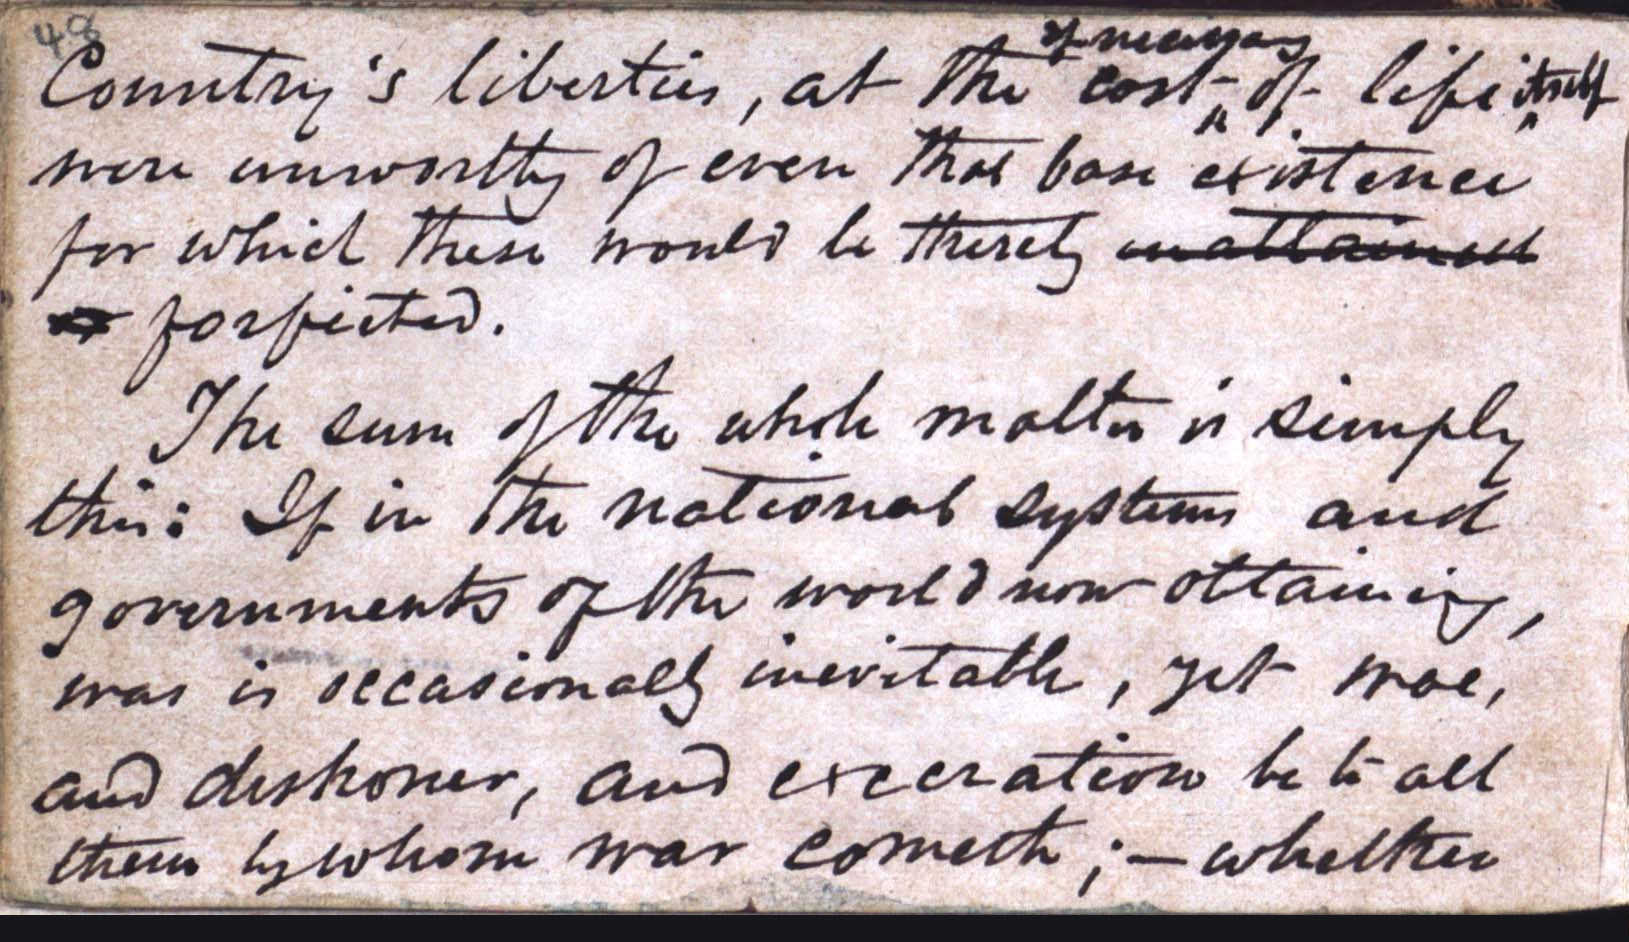 48
if necessary
Country's liberties, at the cost of life itself
were unworthy of even that base existence
for which these would be thereby unattained
forfieted.
The sum of the whole matter is simply
this: If in the national systems and
governments of the world now obtaining,
war is occasionally inevitable, yet woe,
and dishonor, and execration be to all
them by whom war cometh; — whether